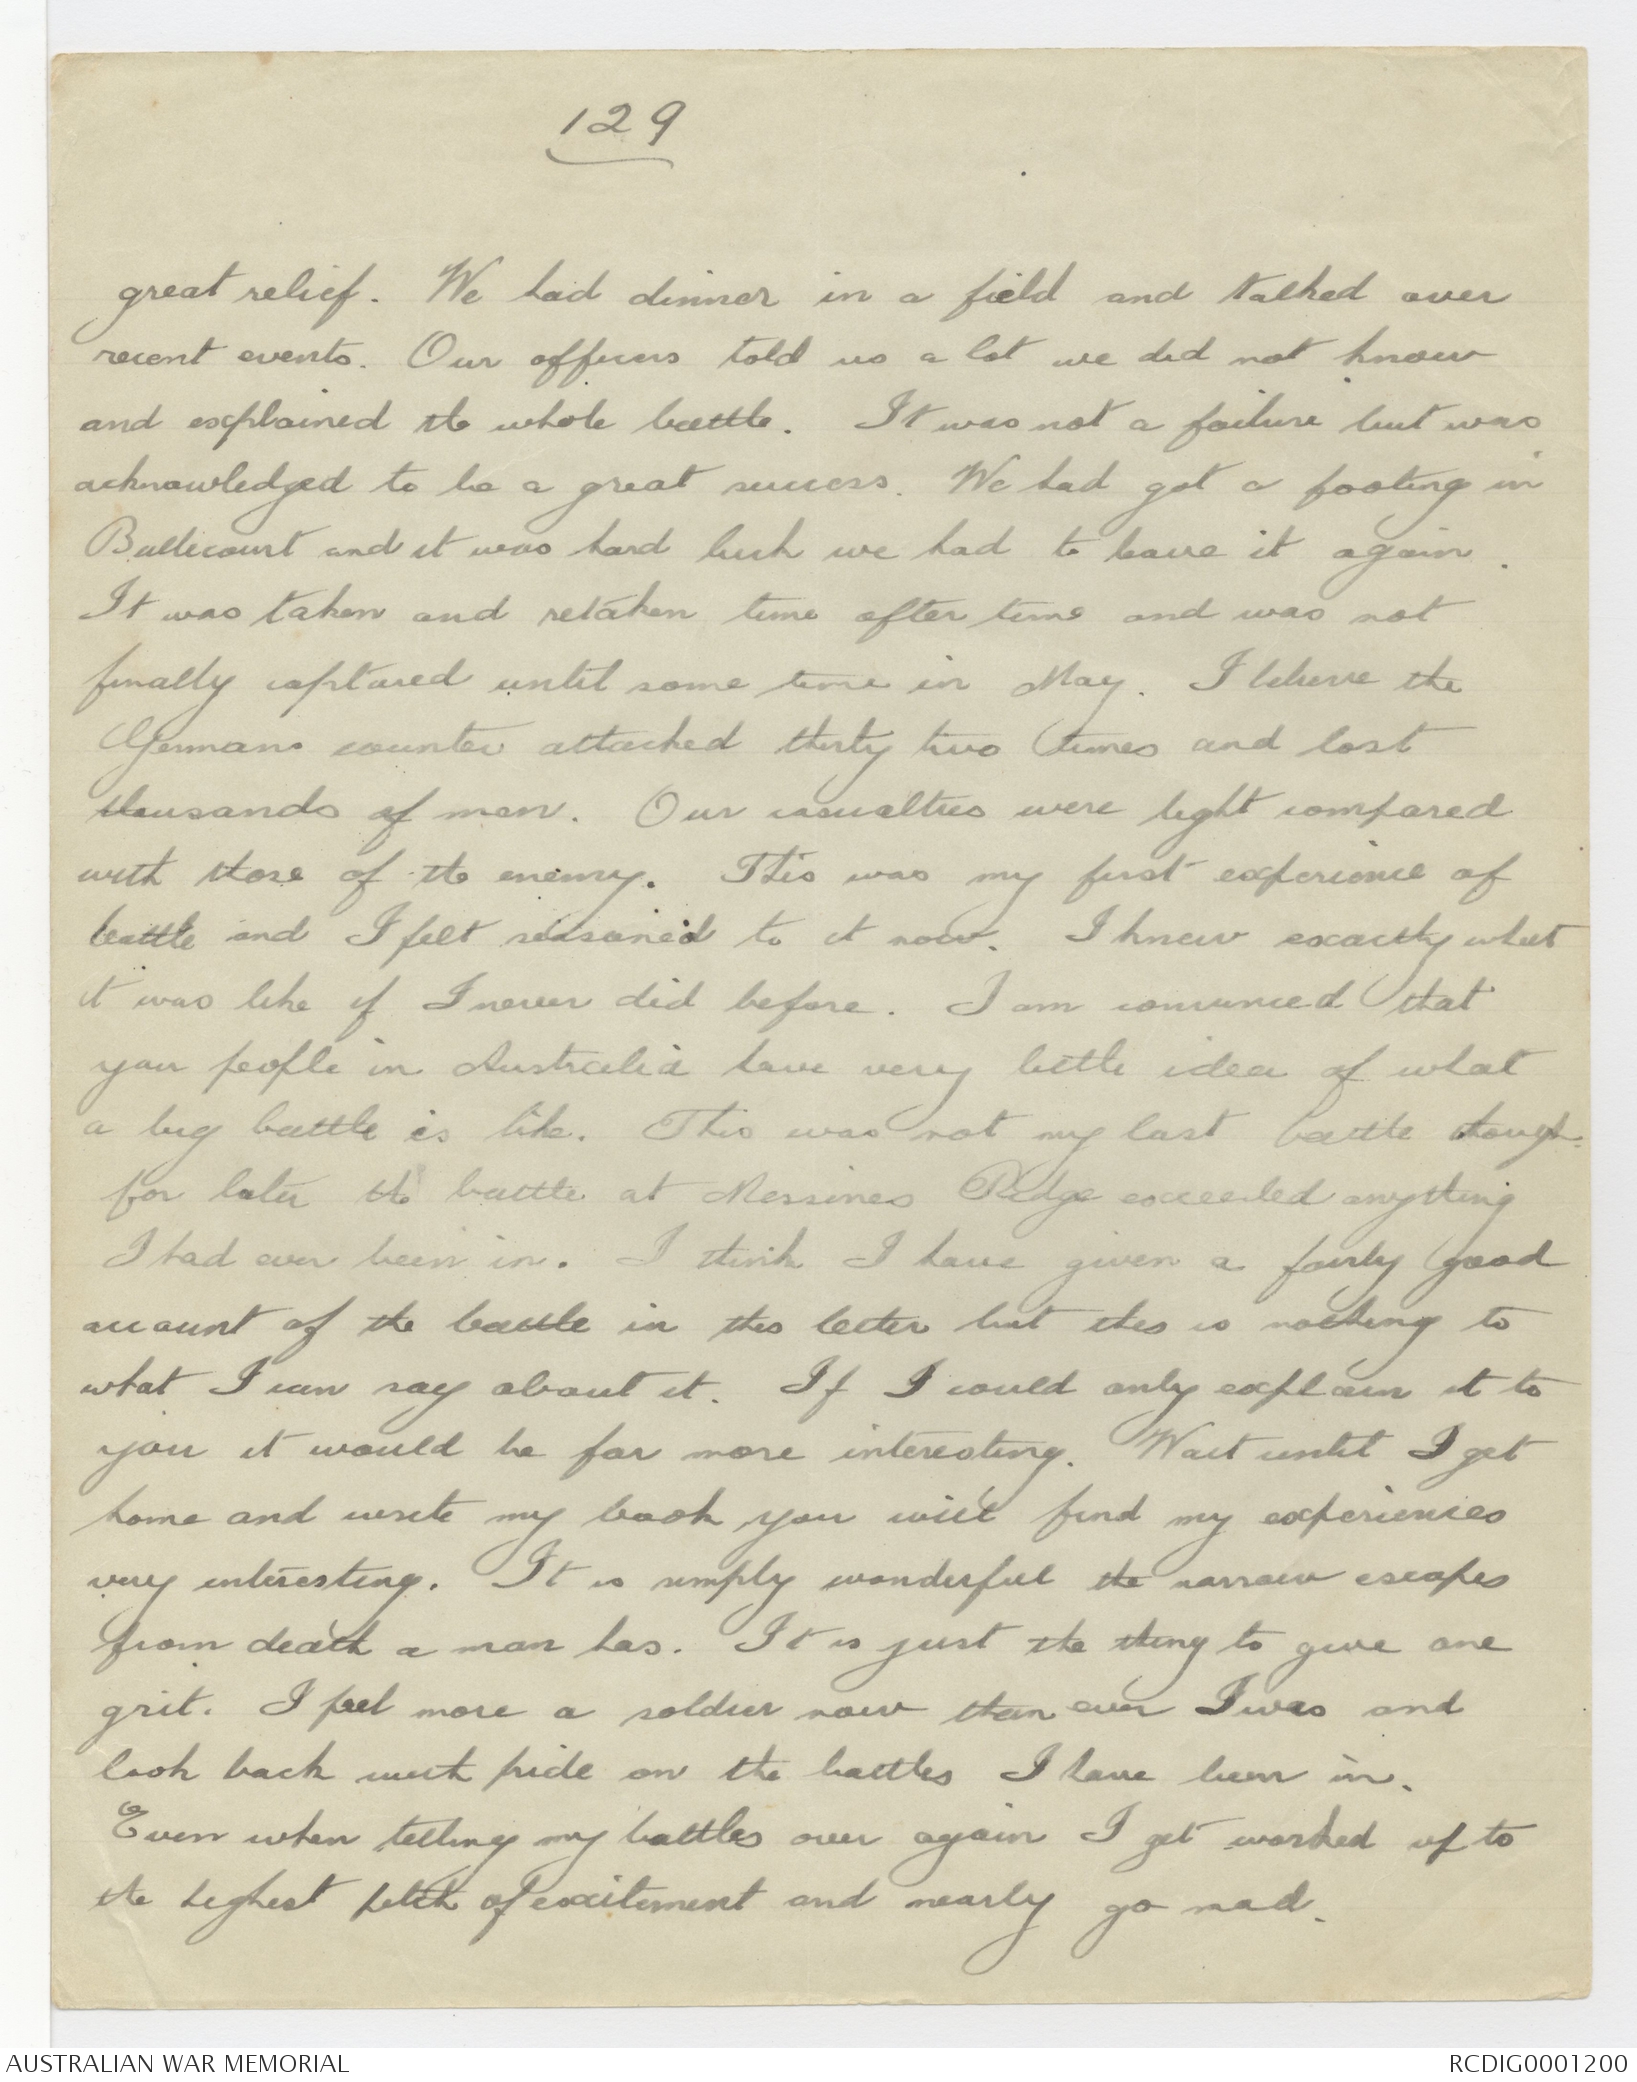 129
great relief. We had dinner in a field and talked over
recent events. Our officers told us a lot we did not know
and explained the whole battle. It was not a failure but was
acknowledged to be a great success. We had got a footing in
Bullecourt and it was hard luck we had to leave it again.
It was taken and retaken time after time and was not
finally captured until some time in May. I believe the
Germans counter attacked thirty two times and lost
thousands of men. Our casualties were light compared
with those of the enemy. This was my first experience of
battle and I felt seasoned to it now. I knew exactly what
it was like if I never did before. I am convinced that
you people in Australia have very little idea of what
a big battle is like. This was not my last battle though
for later the battle at Messines Ridge exceeded anything
I had ever been in. I think I have given a fairly good
account of the battle in this letter but this is nothing to
what I can say about it. If I could only explain it to
you it would be far more interesting. Wait until I get
home and write my book you will find my experiences
very interesting. It is simply wonderful the narrow escapes
from death a man has. It is just the thing to give one
grit. I feel more a soldier now than ever I was and
look back with pride on the battles I have been in.
Even when telling my battles over again I get worked up to
the highest pitch of excitement and nearly go mad.
AUSTRALIAN WAR MEMORIAL
RCDIG0001200